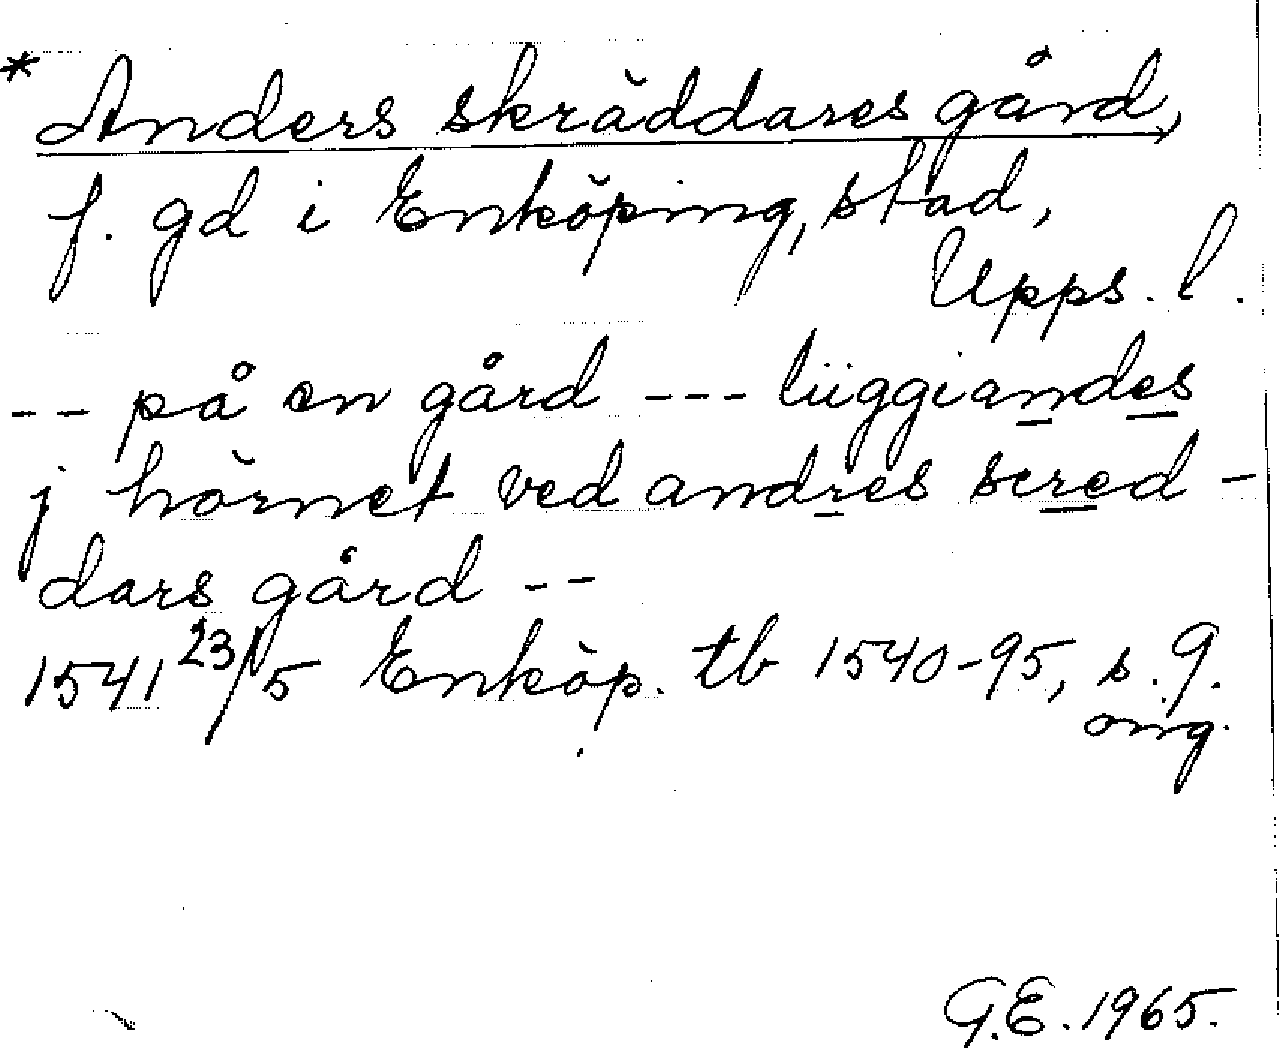 * Anders skräddares gård,
f. gd i Enköping, stad,
Upps. l.
-- på en gård --- lüggiandes
j hörnet ved andres scred-
dars gård --
1541 23/5 Enköp. tb 1540-95, s. 9.
omg.
G.E. 1965.